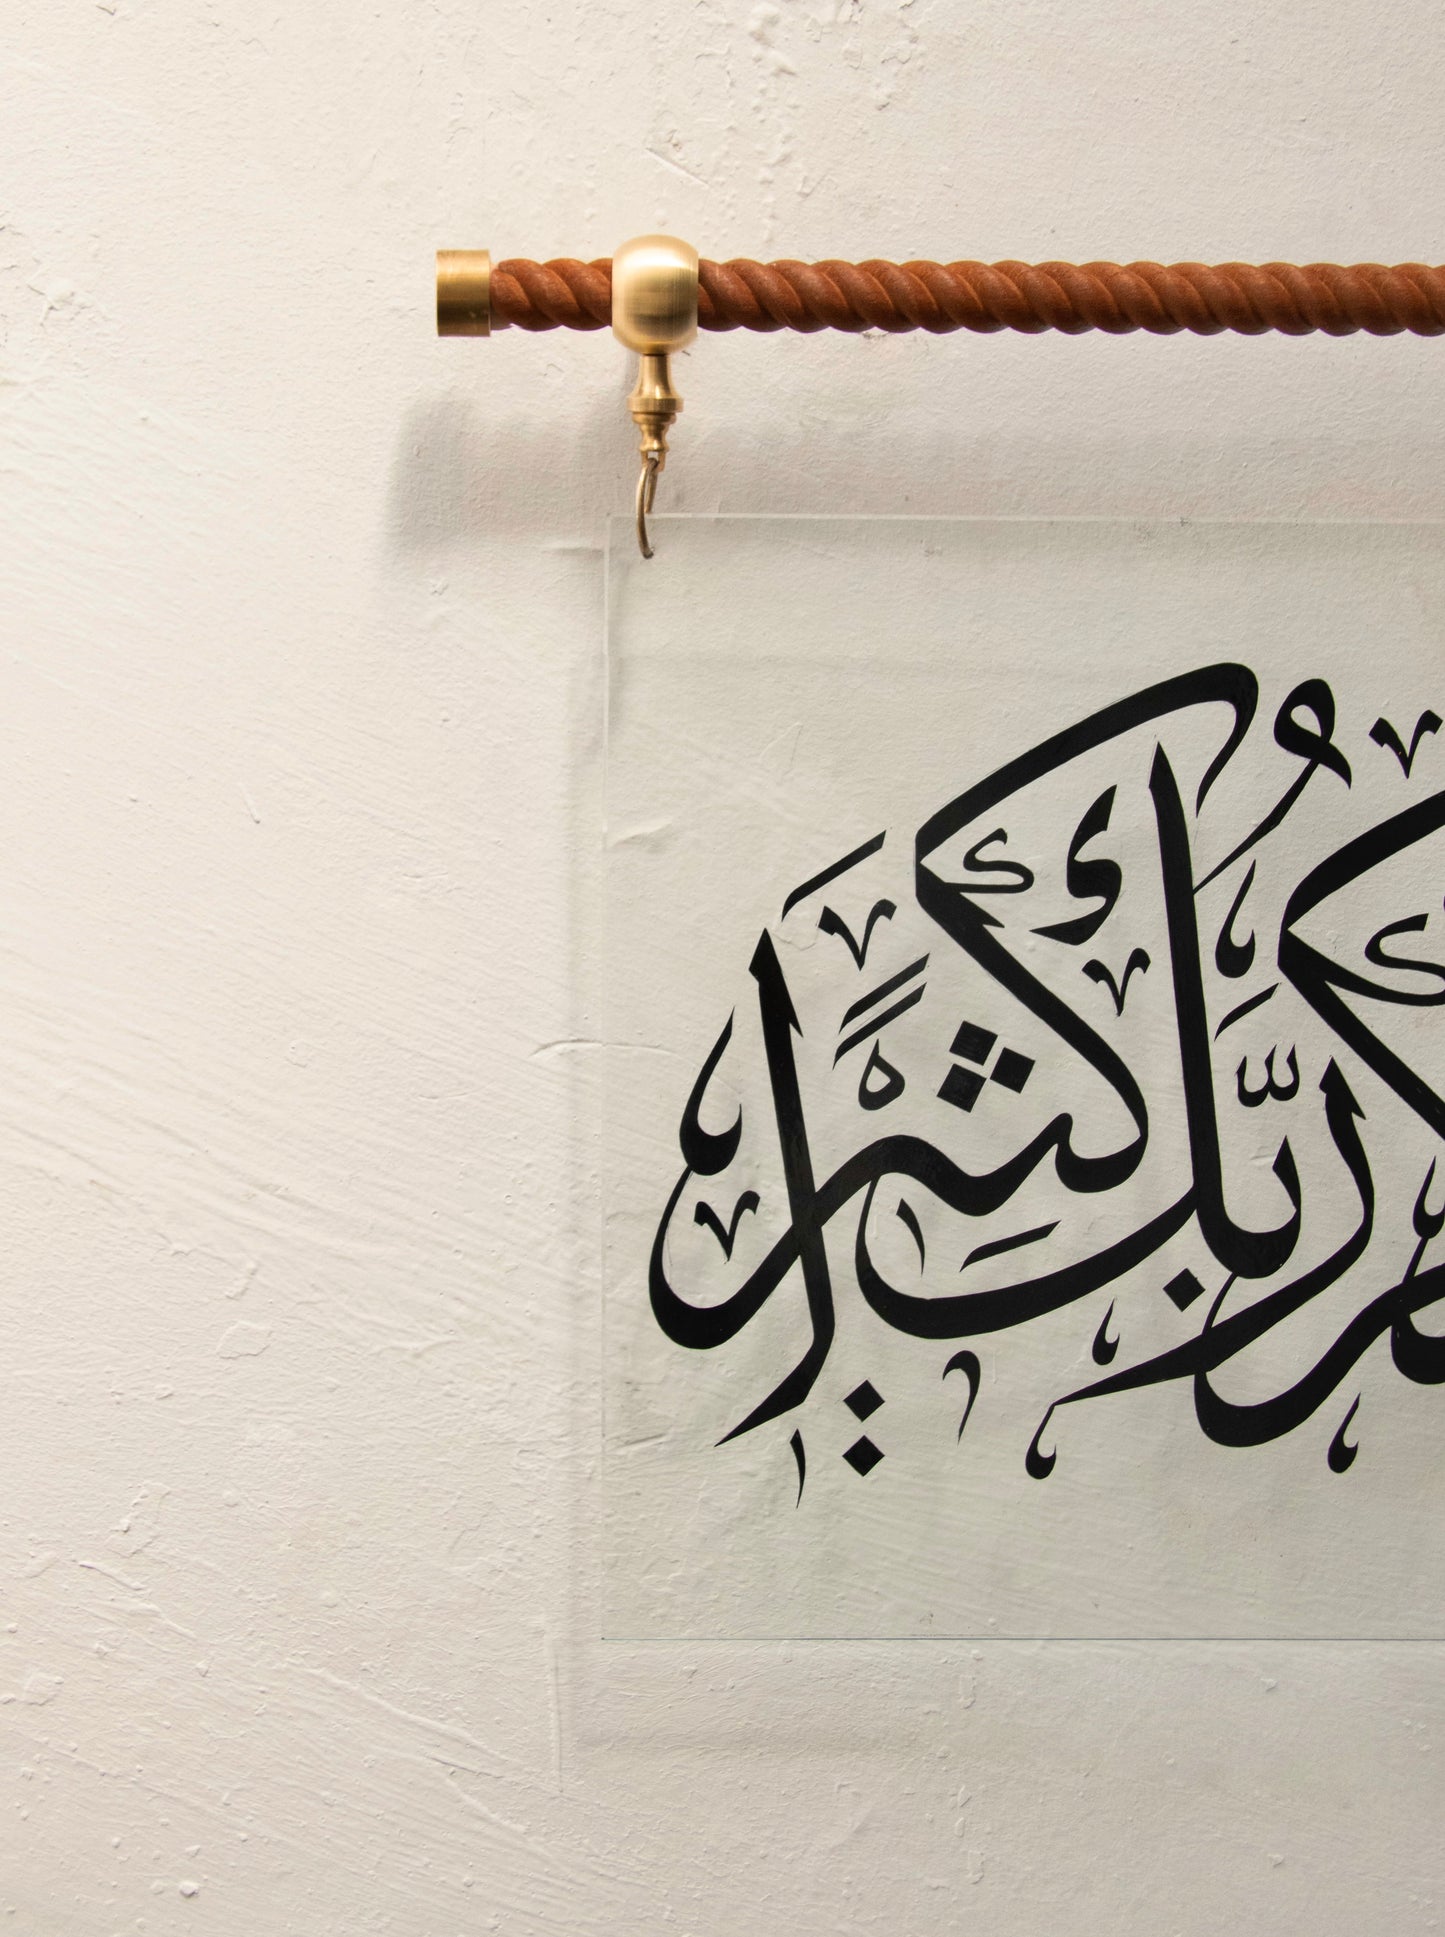 رَبَّكَ كَثِيرًا